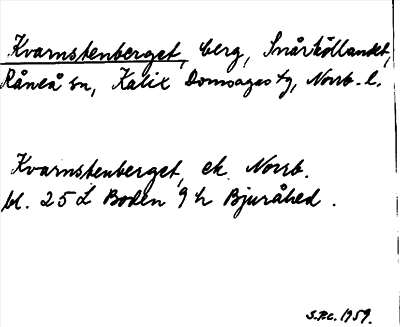 Kvarnstenberget, berg, Snårköllandet,
Råneå sn, Kalix Domsagas tg, Norrb. l.
Kvarnstenberget, ek. Norrb.
bl. 25 L Boden 9 h Bjuråhed.
S.P.C. 1959.